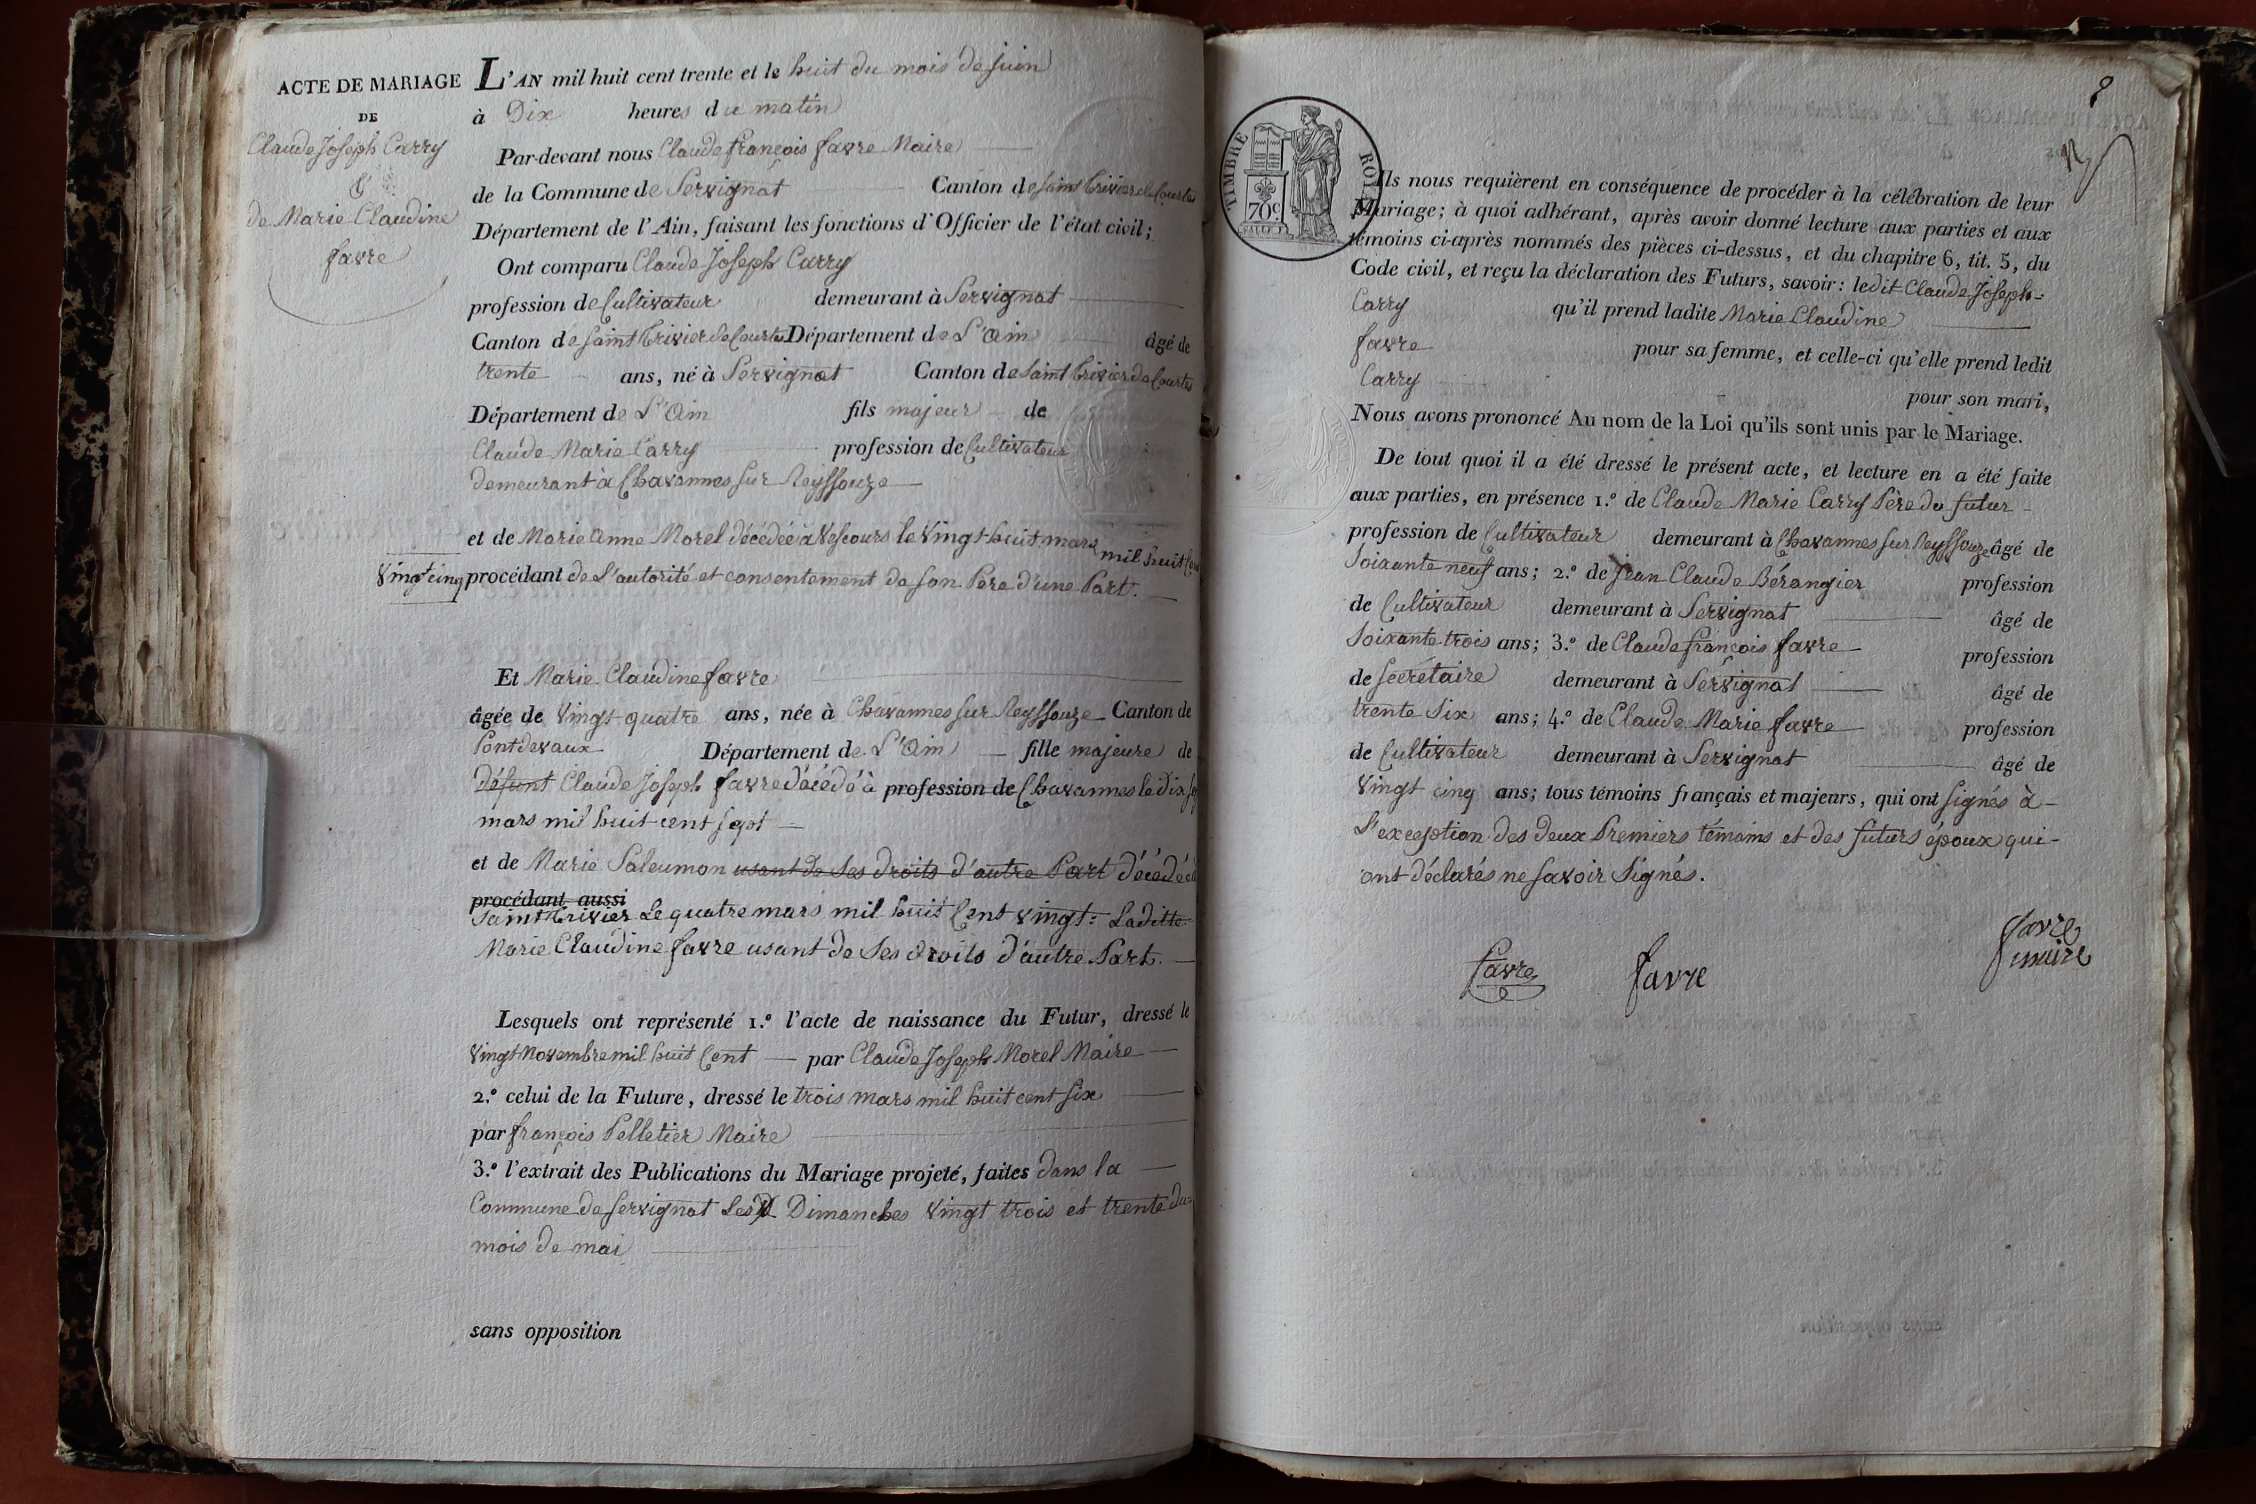 ACTE DE MARIAGE
DE
Claude Joseph Carry
&
de Marie Claudine
favre
L'AN mil huit cent trente et le huit du mois de juin
à Dix heures du matin
Par-devant nous Claude françois favre Maire
de la Commune de Servignat Canton de Saint Trivier de Courtes
Département de l'Ain, faisant les fonctions d'Officier de l'état civil;
Ont comparu Claude Joseph Carry
profession de Cultivateur demeurant à Servignat
Canton de Saint Trivier de Courtes Département de L'Ain âgé de
trente ans, né à Servignat Canton de Saint Trivier de Courtes
Département de L'Ain fils majeur de
Claude Marie Carry profession de Cultivateur
demeurant à Chavannes sur Reyssouze
et de Marie Anne Morel décédée à Vescours le Vingt huit mars mil huit Cent
Vingt cinq procédant de L'autorité et consentement de son Père d'une Part.
Et Marie Claudine favre
âgée de Vingt quatre ans, née à Chavannes sur Reyssouze Canton de
Pontdevaux Département de L'Ain fille majeure de
défunt Claude Joseph favre décédé à profession de Chavannes le Dix
mars mil huit cent sept
et de Marie Paleumon usant de Ses droits d'autre Part décédée à
procédant aussi
Saint Trivier Le quatre mars mil huit Cent vingt. Laditte
Marie Claudine favre usant de Ses droits d'autre Part.
Lesquels ont représenté 1.º l'acte de naissance du Futur, dressé le
Vingt Novembre mil huit Cent par Claude Joseph Morel Maire
2.º celui de la Future, dressé le trois mars mil huit cent six
par françois Pelletier Maire
3.º l'extrait des Publications du Mariage projeté, faites dans la
Commune de Servignat Les Dimanches Vingt trois et trente du
mois de mai
sans opposition
8
TIMBRE ROYAL
70c
Ils nous requièrent en conséquence de procéder à la célébration de leur
Mariage; à quoi adhérant, après avoir donné lecture aux parties et aux
témoins ci-après nommés des pièces ci-dessus, et du chapitre 6, tit. 5, du
Code civil, et reçu la déclaration des Futurs, savoir: ledit Claude Joseph
Carry qu'il prend ladite Marie Claudine
favre pour sa femme, et celle-ci qu'elle prend ledit
Carry pour son mari,
Nous avons prononcé Au nom de la Loi qu'ils sont unis par le Mariage.
De tout quoi il a été dressé le présent acte, et lecture en a été faite
aux parties, en présence 1.º de Claude Marie Carry Père du futur
profession de Cultivateur demeurant à Chavannes sur Reyssouze âgé de
Soixante neuf ans; 2.º de Jean Claude Bérangier profession
de Cultivateur demeurant à Servignat âgé de
Soixante trois ans; 3.º de Claude françois favre profession
de Secrétaire demeurant à Servignat âgé de
trente Six ans; 4.º de Claude Marie favre profession
de Cultivateur demeurant à Servignat âgé de
Vingt cinq ans; tous témoins français et majeurs, qui ont signés à
L'exception des deux Premiers témoins et des futurs époux qui
ont déclarés ne savoir Signés.
favre favre favre
maire